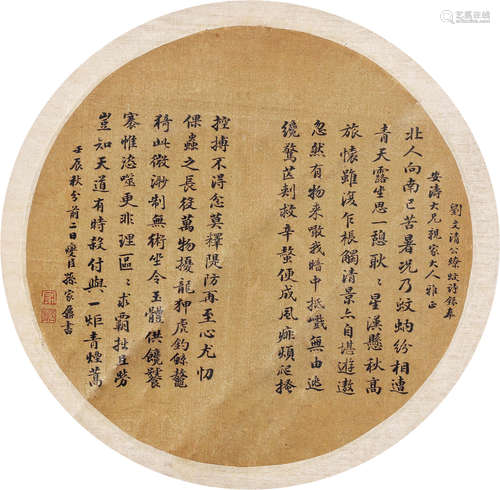 劉文清公療蚊詩錄奉
安濤大兄親家大人雅正
北人向南已苦暑況乃蚊蚋紛相遭
青天露坐思一憩耿耿星漢懸秋高
旅懷雖泼乍棖觸清景亦自堪遊遨
忽然有物來噉我暗中抵巇無由逃
繞鬢筐刾救辛螫便成風痱頻爬搔
控搏不得愈莫釋隄防再至心尤忉
倮蟲之長役萬物擾龍狎虎釣餘鼇
猗此微渺制無術坐令玉體供饒餮
寒惟恣噬更非理區區求霸拙且勞
豈知天道有時殺付與一炬青煙蒿
壬辰秋分前二日燮臣孫家鼐書